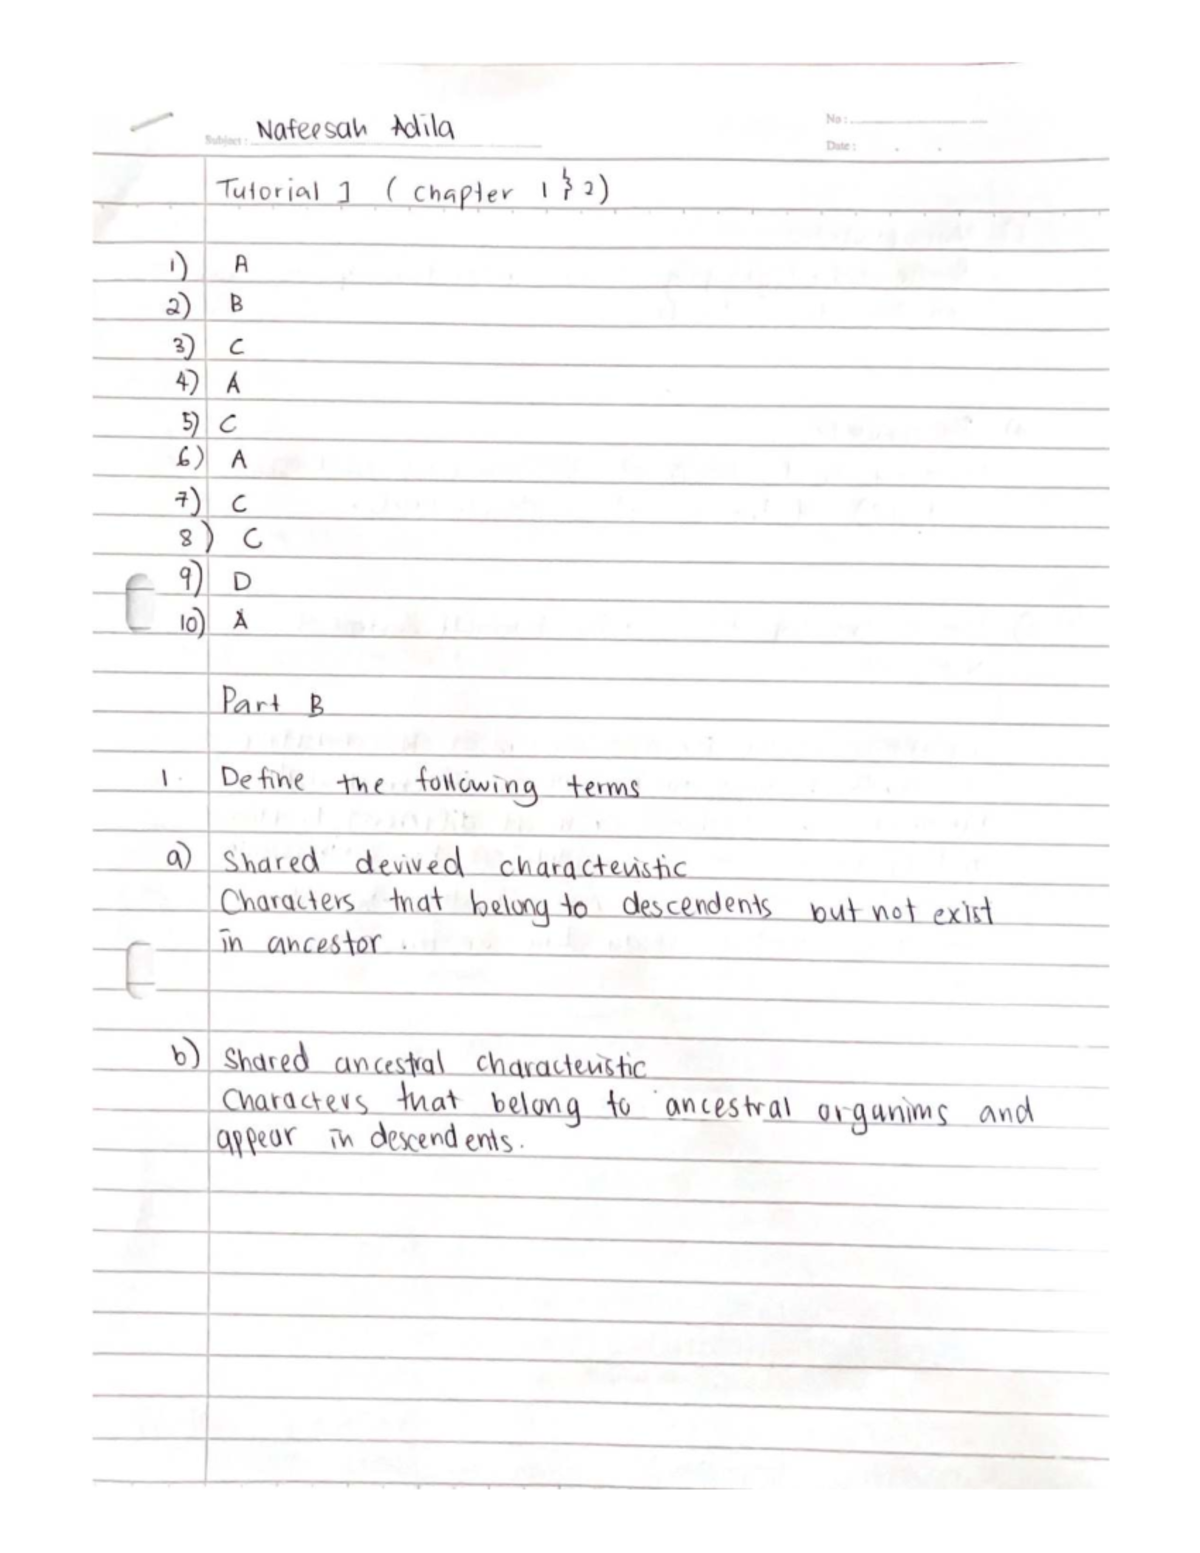 Subject: Nafeesah Adila
No:
Date:
Tutorial 1 (chapter 1 & 2)
1) A
2) B
3) C
4) A
5) C
6) A
7) C
8) C
9) D
10) A
Part B
1. Define the following terms
a) Shared derived characteristic
Characters that belong to descendents but not exist
in ancestor.
b) Shared ancestral characteristic
Characters that belong to ancestral organims and
appear in descendents.